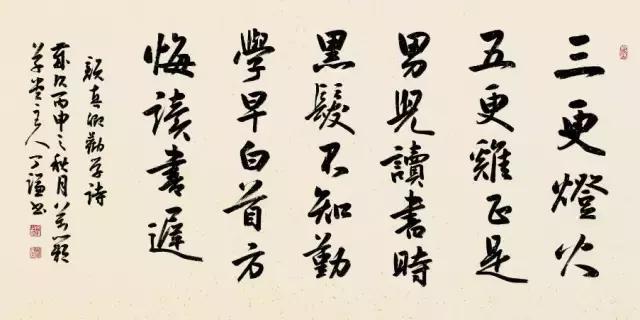 三更燈火
五更雞正是
男兒讀書時
黑髮不知勤
學早白首方
悔讀書遲
顏真卿勸學詩
歲次丙申之秋月
草堂主人丁謙書